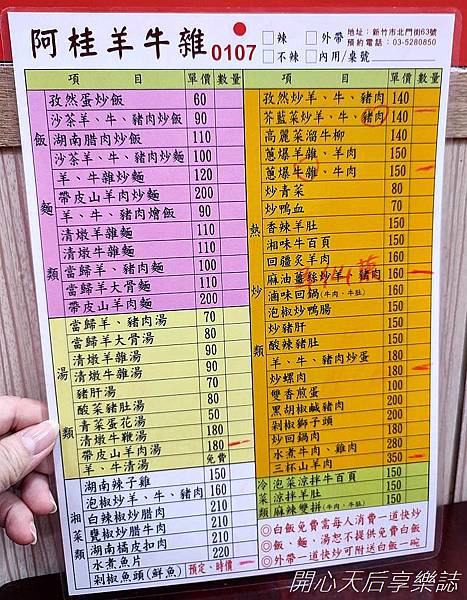 阿桂羊牛雜 0107 □辣 □外帶
□不辣 □內用/桌號
地址：新竹市北門街63號
預約電話：03-5280850
項 目 單價 數量
飯麵類
孜然蛋炒飯 60
沙茶羊、牛、豬肉炒飯 90
湖南腊肉炒飯 110
沙茶羊、牛、豬肉炒麵 100
羊、牛雜炒麵 120
帶皮山羊肉炒麵 200
羊、牛、豬肉燴飯 90
清燉羊雜麵 110
清燉牛雜麵 110
當歸羊、豬肉麵 100
當歸羊大骨麵 110
帶皮山羊肉麵 200
湯類
當歸羊、豬肉湯 70
當歸羊大骨湯 80
清燉羊雜湯 90
清燉牛雜湯 90
豬肝湯 70
酸菜豬肚湯 80
青菜蛋花湯 50
清燉牛鞭湯 180
帶皮山羊肉湯 180
羊、牛清湯 免費
湘菜類
湖南辣子雞 150
泡椒炒羊、牛、豬肉 160
白辣椒炒腊肉 210
鹽椒炒腊牛肉 210
湖南橘皮扣肉 210
水煮魚片 220
剁椒魚頭(鮮魚) 預定、時價
項 目 單價 數量
熱炒類
孜然炒羊、牛、豬肉 140
芥藍菜炒羊、牛、豬肉 140
高麗菜溜牛柳 150
蔥爆羊雜、羊肉 150
蔥爆牛雜、牛肉 150
炒青菜 80
炒鴨血 70
香辣羊肚 150
湘味牛百頁 150
回疆炙羊肉 150
麻油薑絲炒羊、豬肉 160
滷味回鍋(牛肉、牛肚) 160
泡椒炒鴨腸 150
炒豬肝 150
酸辣豬肚 150
羊、牛、豬肉炒蛋 180
炒螺肉 180
雙香煎蛋 100
黑胡椒鹹豬肉 200
剁椒獅子頭 200
炒回鍋肉 200
水煮牛肉、雞肉 280
三杯山羊肉 350
冷菜類
泡菜涼拌牛百頁 150
涼拌羊肚 150
麻辣雙拼(牛肉、牛肚) 150
◎白飯免費需每人消費一道快炒
◎飯、麵、湯恕不提供免費白飯
◎外帶一道快炒可附送白飯一碗
開心天后享樂誌